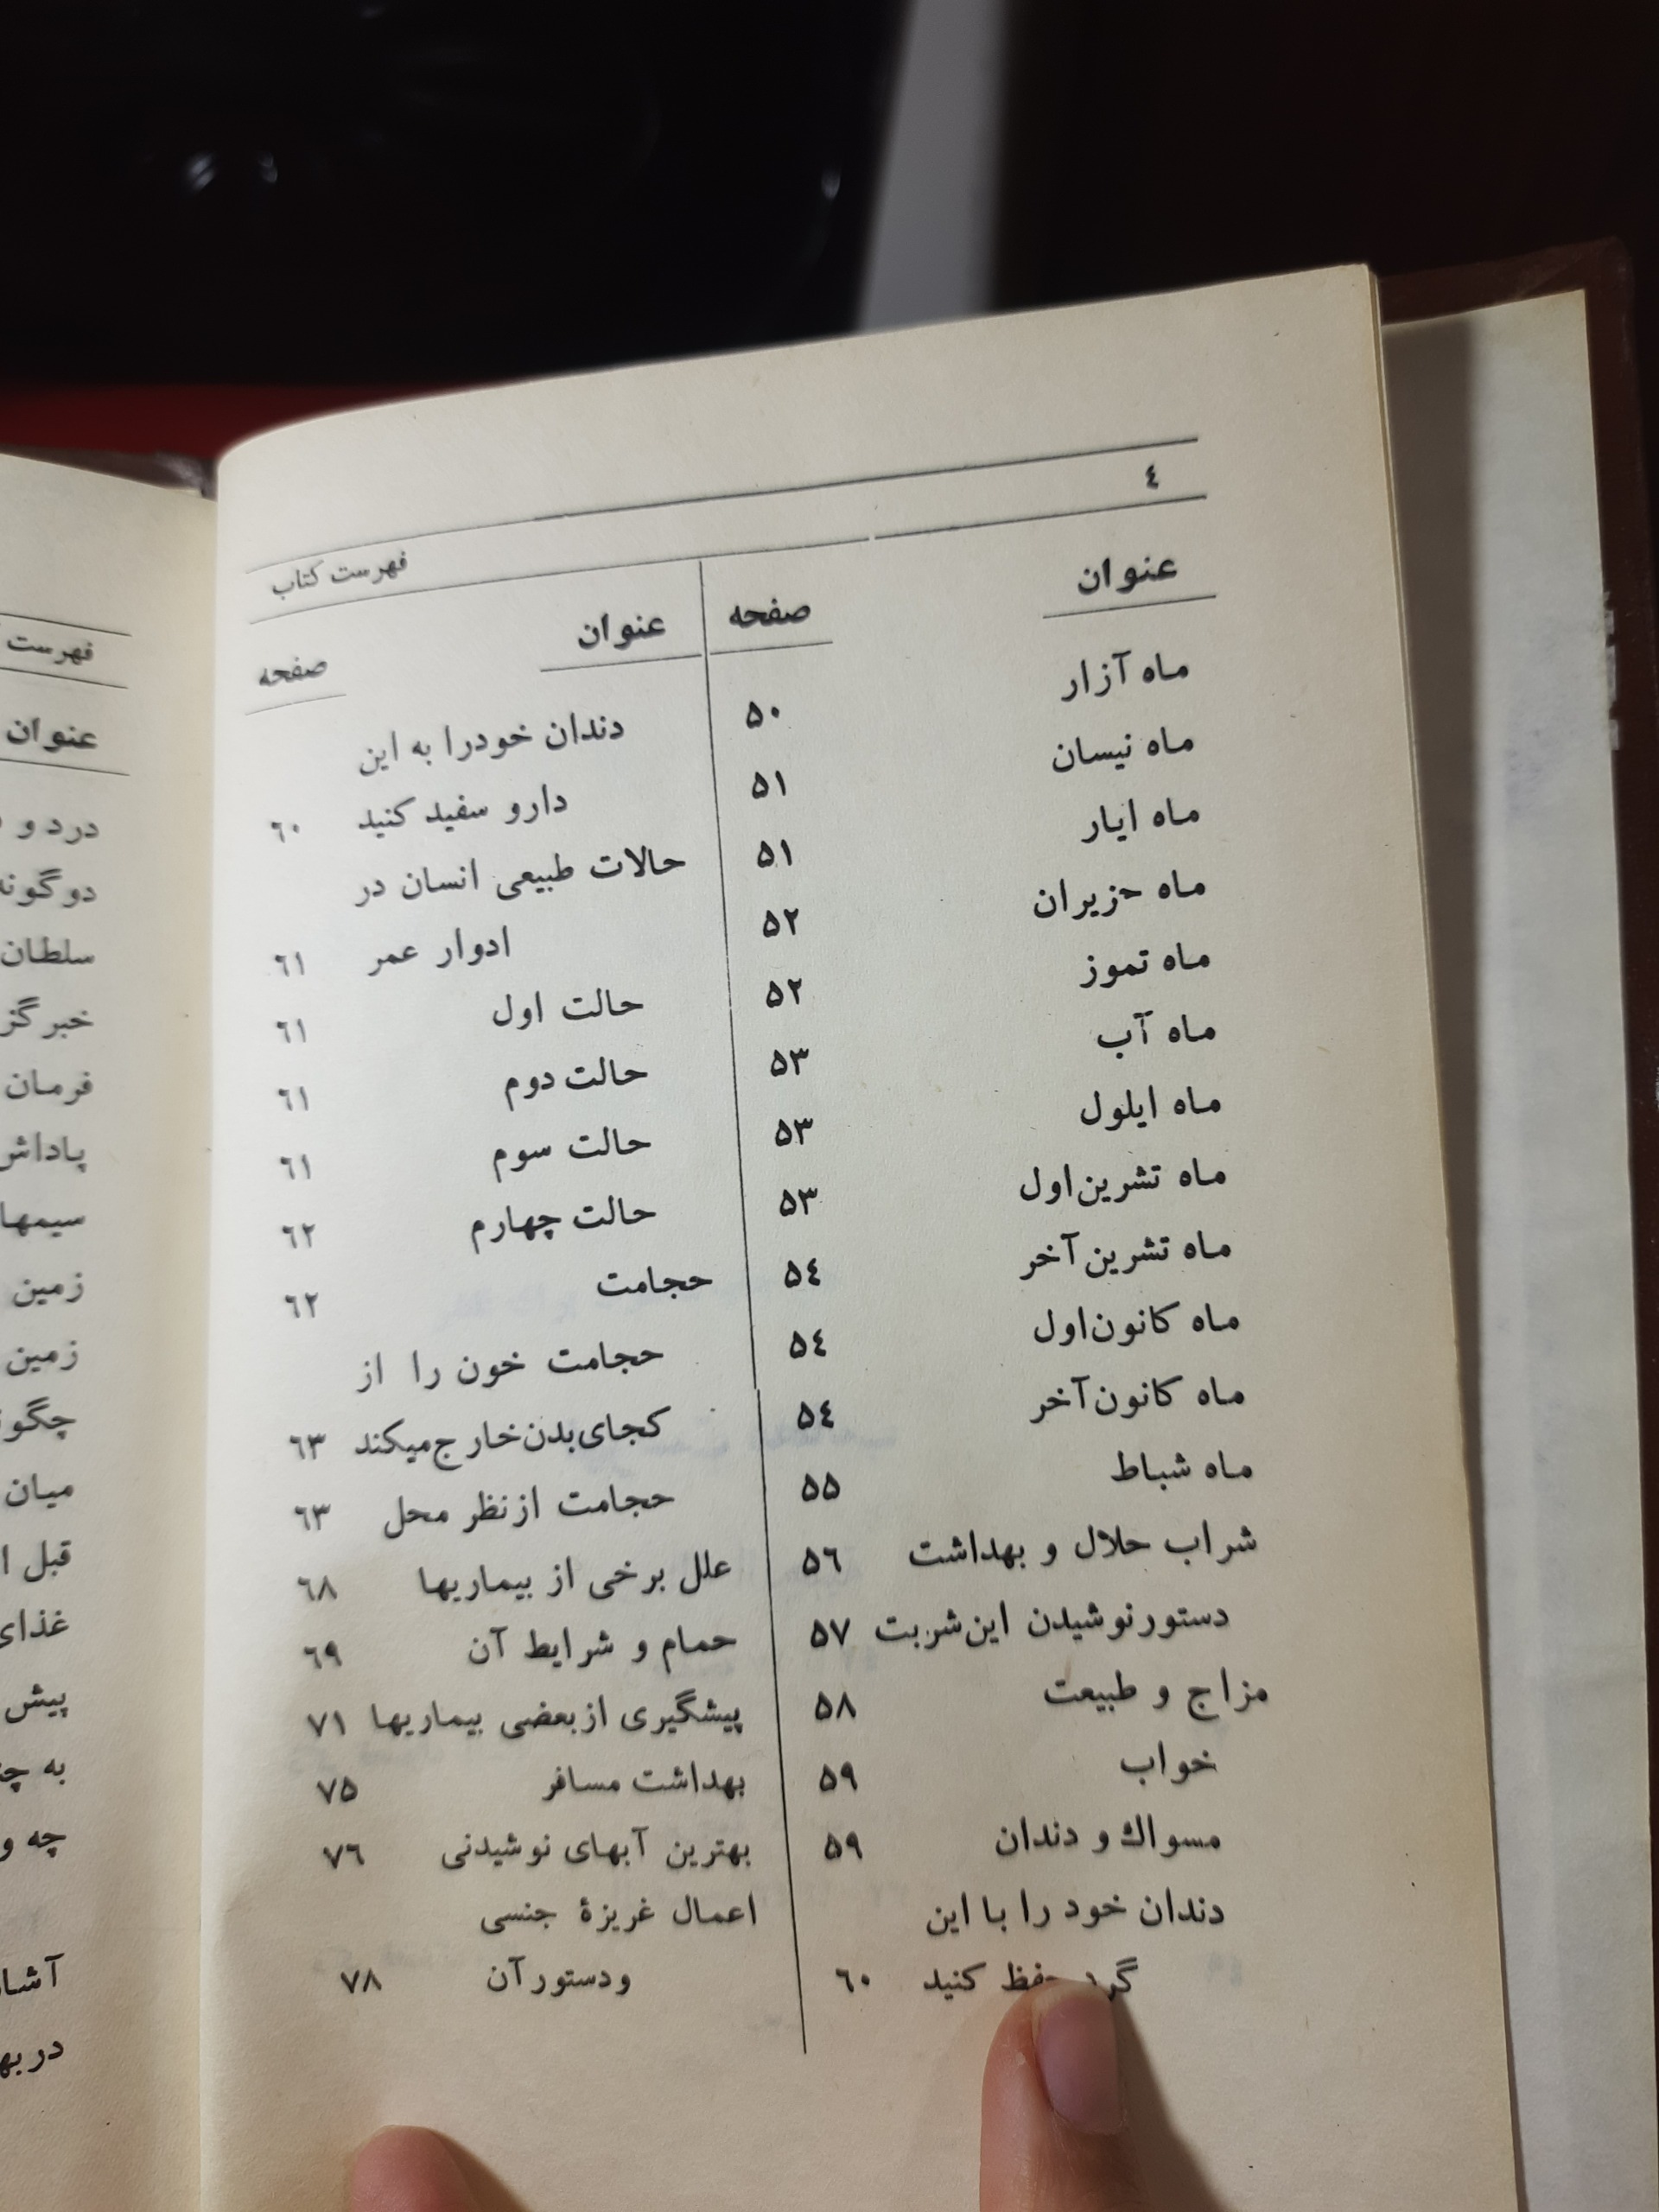 ٤
فهرست کتاب
عنوان
صفحه
ماه آزار ۵۰
ماه نیسان ۵۱
ماه ایار ۵۱
ماه حزیران ۵۲
ماه تموز ۵۲
ماه آب ۵۳
ماه ایلول ۵۳
ماه تشرین‌اول ۵۳
ماه تشرین‌آخر ۵٤
ماه کانون‌اول ۵٤
ماه کانون‌آخر ۵٤
ماه شباط ۵۵
شراب حلال و بهداشت ۵٦
دستور نوشیدن این‌شربت ۵۷
مزاج و طبیعت ۵۸
خواب ۵۹
مسواك و دندان ۵۹
دندان خود را با این
حفظ کنید ٦۰
عنوان
صفحه
دندان خودرا به این
دارو سفید کنید ٦۰
حالات طبیعی انسان در
ادوار عمر ٦۱
حالت اول ٦۱
حالت دوم ٦۱
حالت سوم ٦۱
حالت چهارم ٦۲
حجامت ٦۲
حجامت خون را از
کجای‌بدن‌خارج‌میکند ٦۳
حجامت ازنظر محل ٦۳
علل برخی از بیماریها ٦۸
حمام و شرایط آن ٦۹
پیشگیری ازبعضی بیماریها ۷۱
بهداشت مسافر ۷۵
بهترین آبهای نوشیدنی ۷٦
اعمال غریزهٔ جنسی
ودستورآن ۷۸
فهرست
عنوان
درد و
دوگونه
سلطان
فرمان
پاداش
زمین
زمین
میان
قبل
غذای
پیش
به
چه و